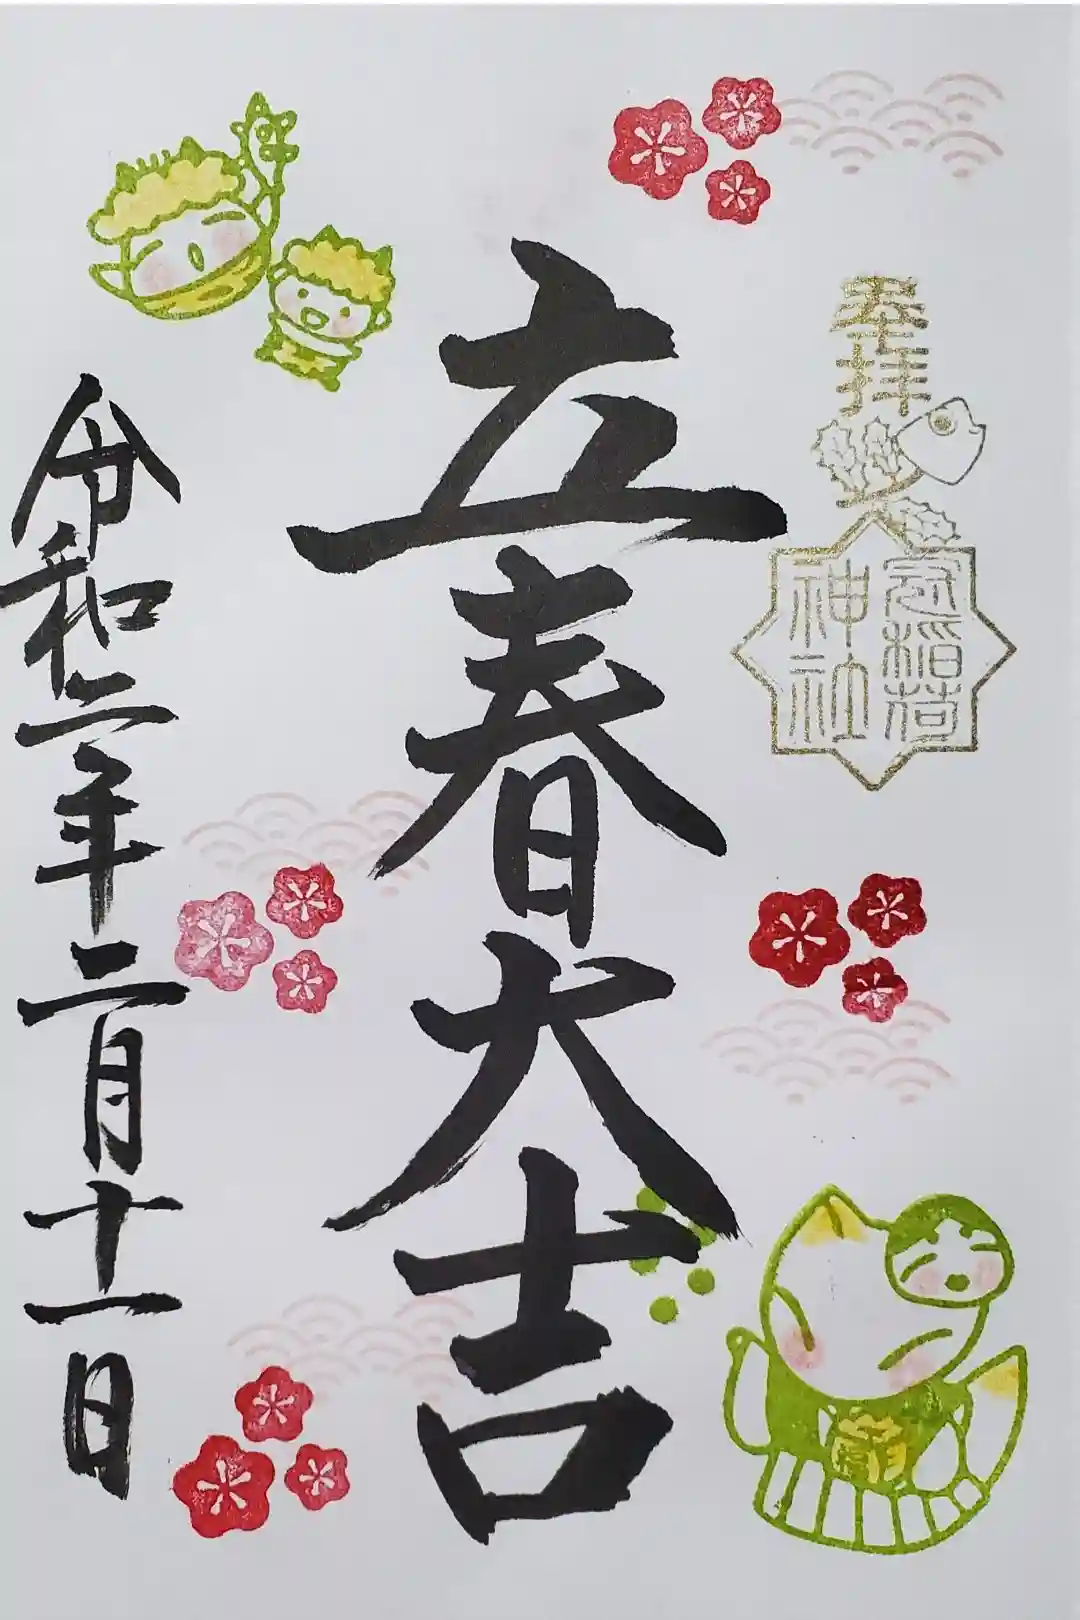 奉拝
立春大吉
令和二年二月十一日
稲荷
神社